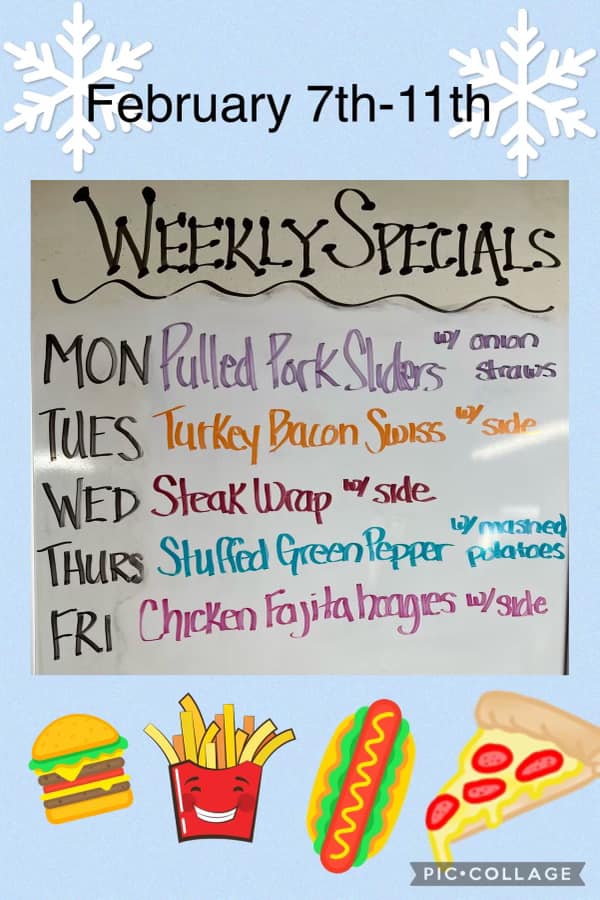 February 7th-11th
WEEKLY SPECIALS
MON Pulled Pork Sliders w/ onion straws
TUES Turkey Bacon Swiss w/ side
WED Steak Wrap w/ side
THURS Stuffed Green Pepper w/ mashed potatoes
FRI Chicken Fajita hoagies w/ side
PIC•COLLAGE